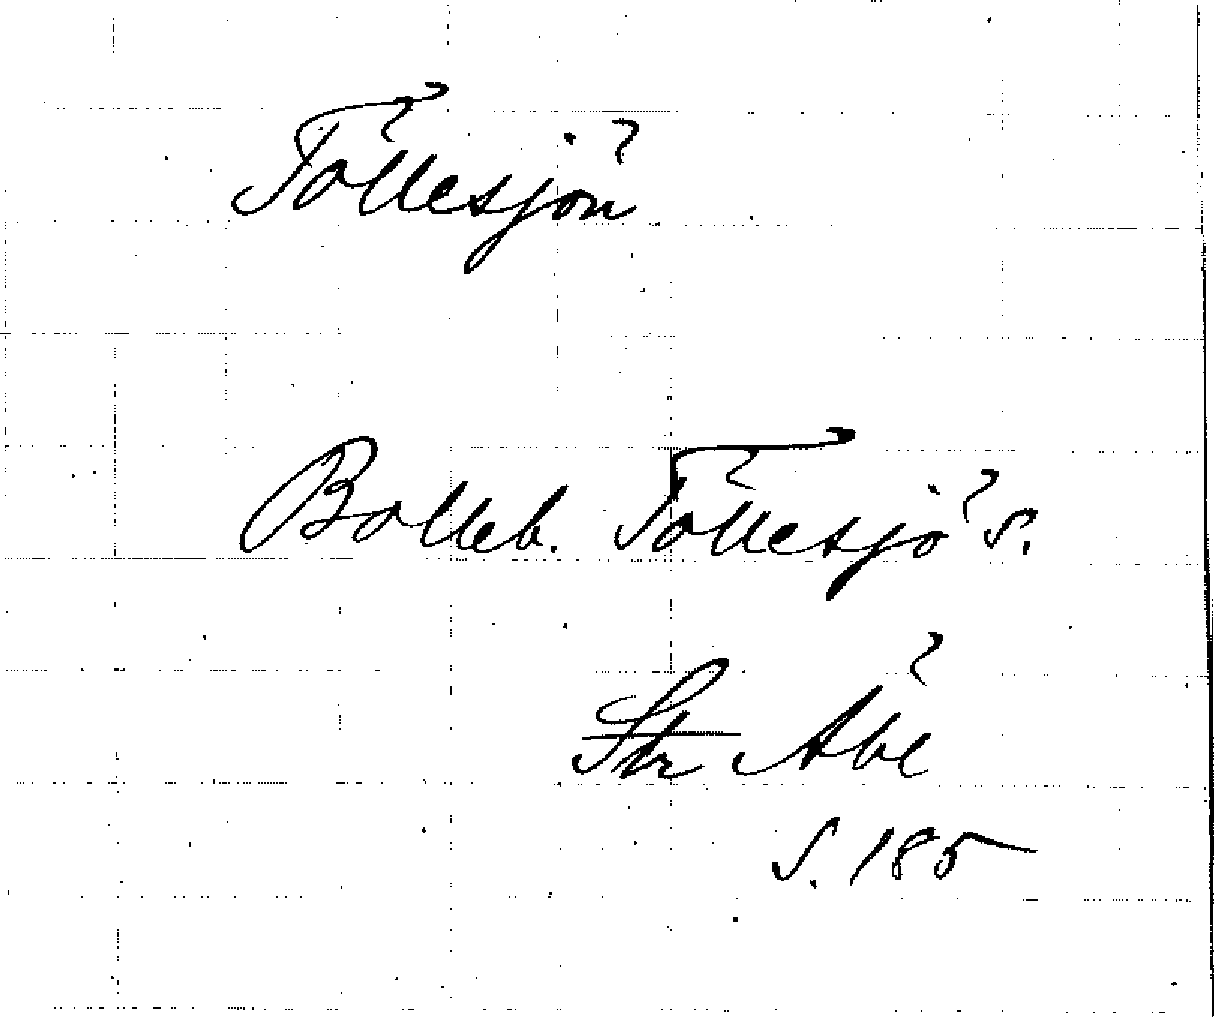 Töllesjön
Bolleb. Töllesjö s.
Str Åbe
S. 185